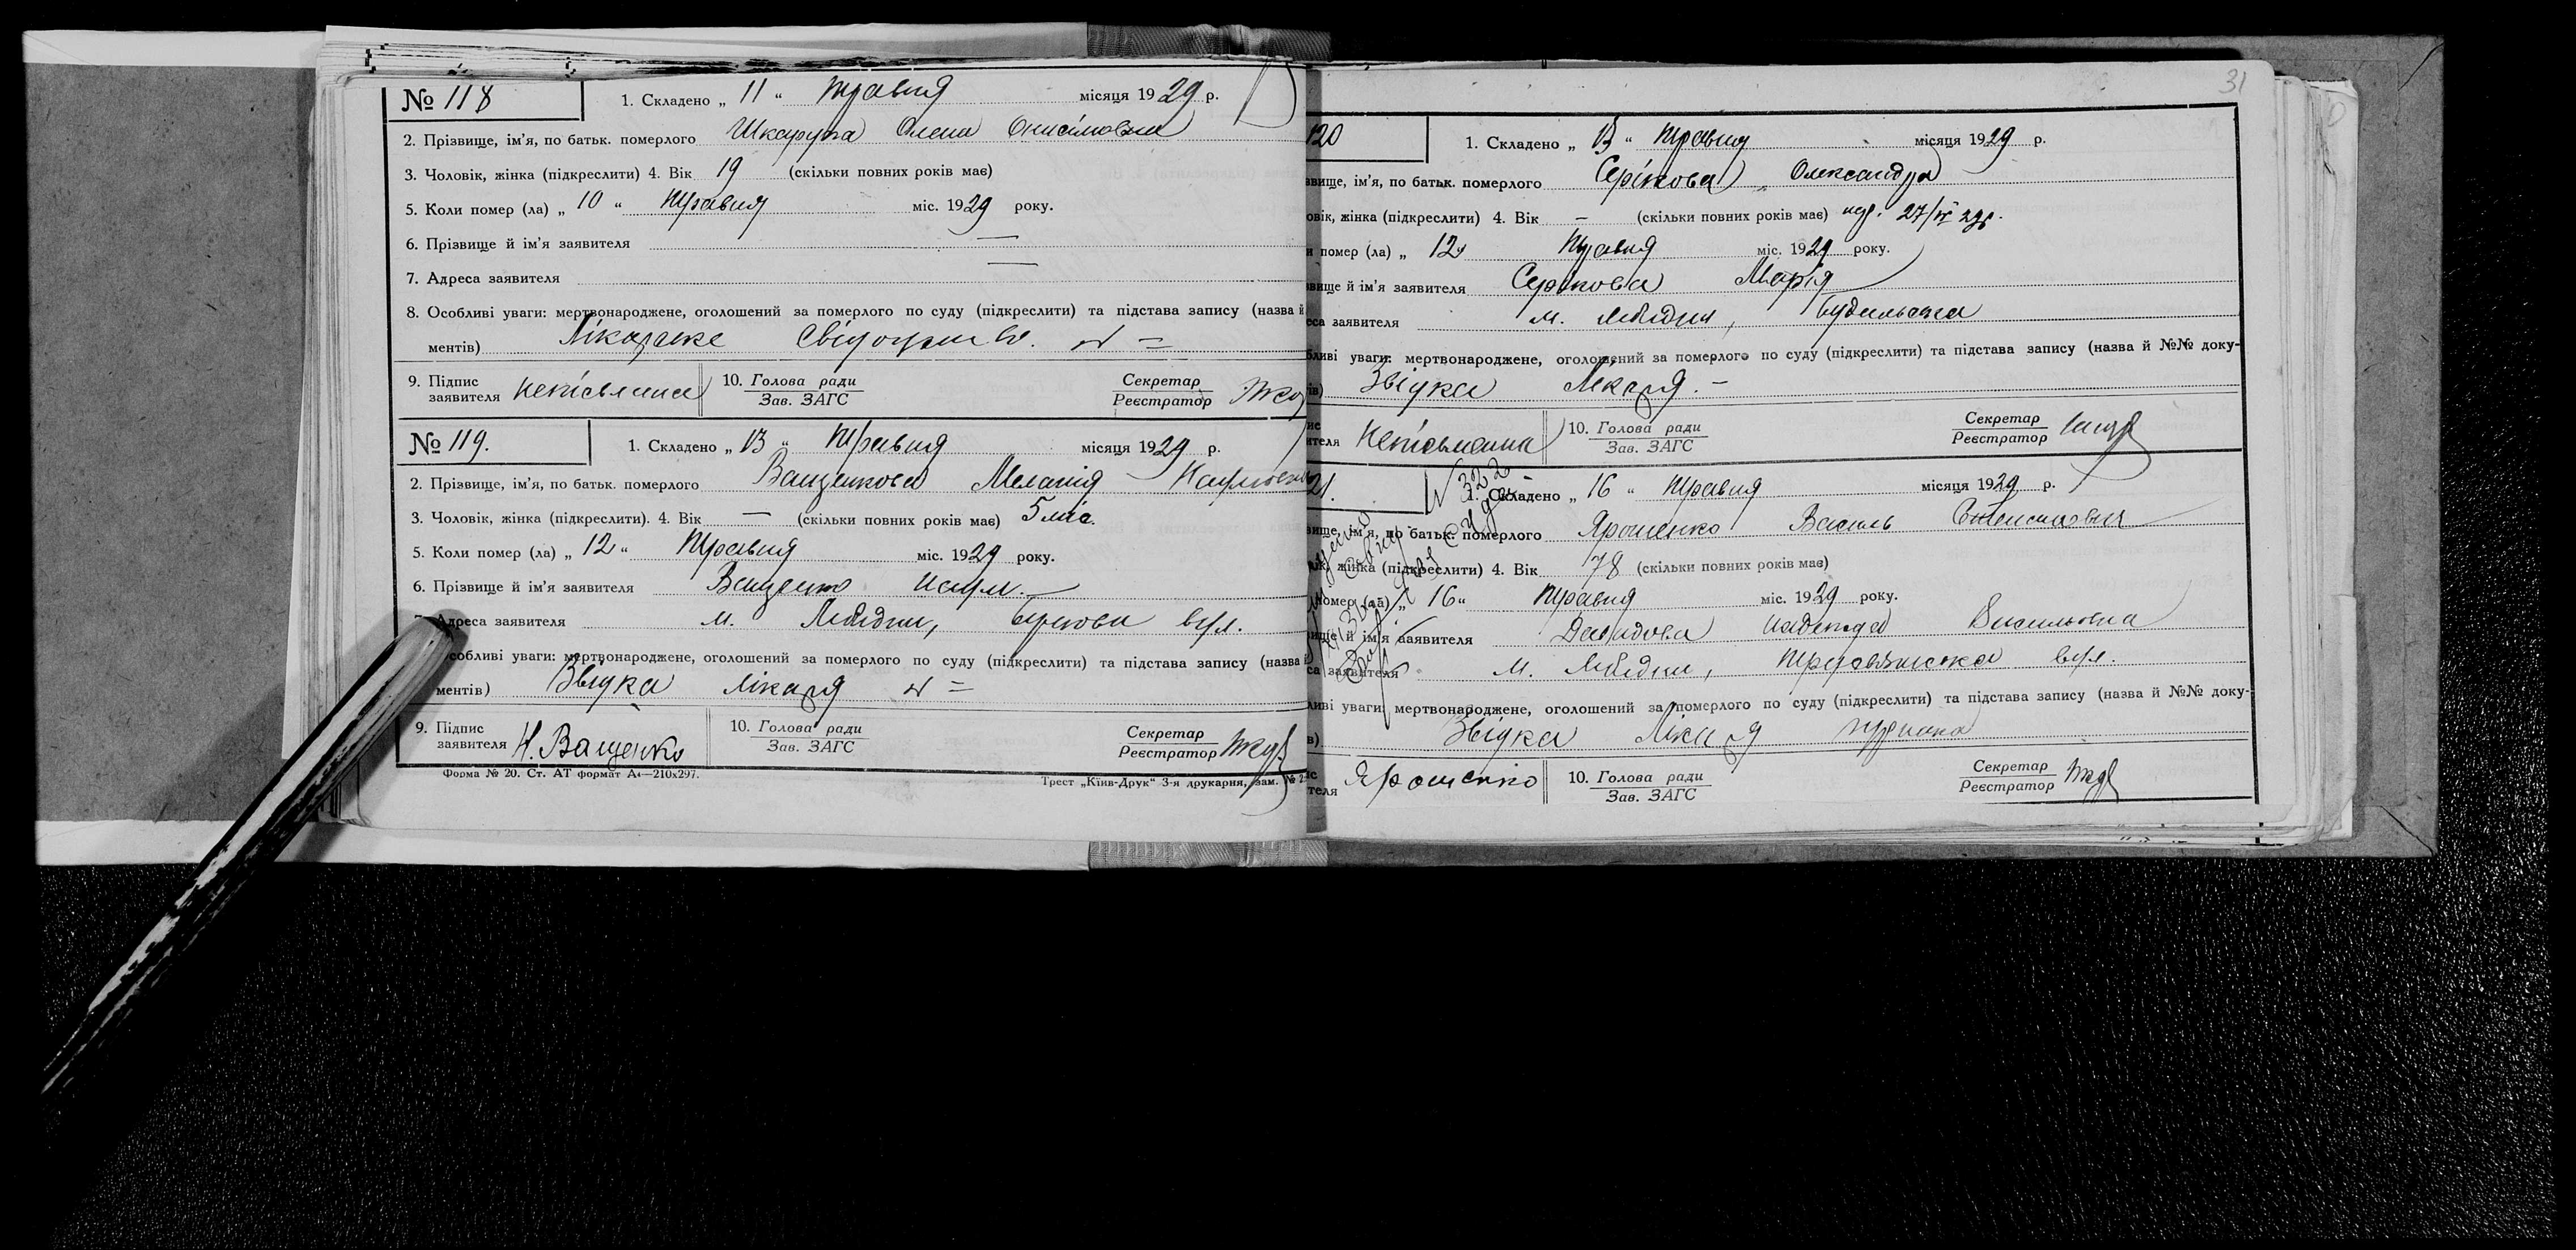 № 118
1. Складено „ 11 “ травня місяця 1929 р.
2. Прізвище, ім'я, по батьк. померлого Шкарупа Олена Онисімовна
3. Чоловік, жінка (підкреслити) 4. Вік 19 (скільки повних років має)
5. Коли помер (ла) „ 10 “ травня міс. 1929 року.
6. Прізвище й ім'я заявителя —
7. Адреса заявителя —
8. Особливі уваги: мертвонароджене, оголошений за померлого по суду (підкреслити) та підстава запису (назва й
ментів) Лікарське
9. Підпис заявителя неписьменна 10. Голова ради Зав. ЗАГС Секретар Реєстратор
№ 119.
1. Складено „ 13 “ травня місяця 1929 р.
2. Прізвище, ім'я, по батьк. померлого Ващенкова Меланія
3. Чоловік, жінка (підкреслити). 4. Вік — (скільки повних років має) 5 міс.
5. Коли помер (ла) „ 12 “ травня міс. 1929 року.
6. Прізвище й ім'я заявителя Ващенко
7. Адреса заявителя м. Лебедин, вул.
собливі уваги: мертвонароджене, оголошений за померлого по суду (підкреслити) та підстава запису (назва й
ментів) Звідка лікаря
9. Підпис заявителя Н. Ващенко 10. Голова ради Зав. ЗАГС Секретар Реєстратор
Форма № 20. Ст. АТ формат А4—210х297. Трест „Київ-Друк“ 3-я друкарня, зам. № 2
31
120
1. Складено „ 13 “ травня місяця 1929 р.
звище, ім'я, по батьк. померлого Серікова Олександра
овік, жінка (підкреслити) 4. Вік — (скільки повних років має) 27/IV 29р.
и помер (ла) „ 12 “ травня міс. 1929 року.
звище й ім'я заявителя Серікова Марія
еса заявителя м. Лебедин, Будильська
бливі уваги: мертвонароджене, оголошений за померлого по суду (підкреслити) та підстава запису (назва й №№ доку-
ів) Звідка лікаря. —
ис ителя Неписьменна 10. Голова ради Зав. ЗАГС Секретар Реєстратор
21.
№ 322
1. Складено „ 16 “ травня місяця 1929 р.
вище, ім'я, по батьк. померлого Ярошенко Василь
ік, жінка (підкреслити) 4. Вік 78 (скільки повних років має)
помер (ла) „ 16 “ травня міс. 1929 року.
вище й ім'я заявителя Давидова Надежда Васильевна
са заявителя м. Лебедин, вул.
ливі уваги: мертвонароджене, оголошений за померлого по суду (підкреслити) та підстава запису (назва й №№ доку-
в) Звідка лікаря
ис теля Ярошенко 10. Голова ради Зав. ЗАГС Секретар Реєстратор